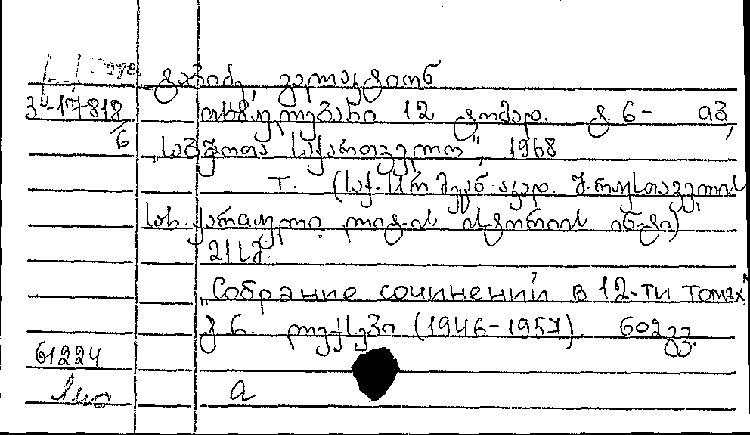 ტაბიძე, გალაკტიონ
3-17818/6 თხზულებანი 12 ტომად. ტ. 6- თბ,
„საბჭოთა საქართველო", 1968
T. (საქ. სსრ მეცნ. აკად. შ. რუსთაველის
სახ. ქართული ლიტ-ის ისტორიის ინსტ)
21სმ.
„Собрание сочинений в 12-ти томах"
ტ 6. ლექსები (1946-1957). 602გვ.
61224
a